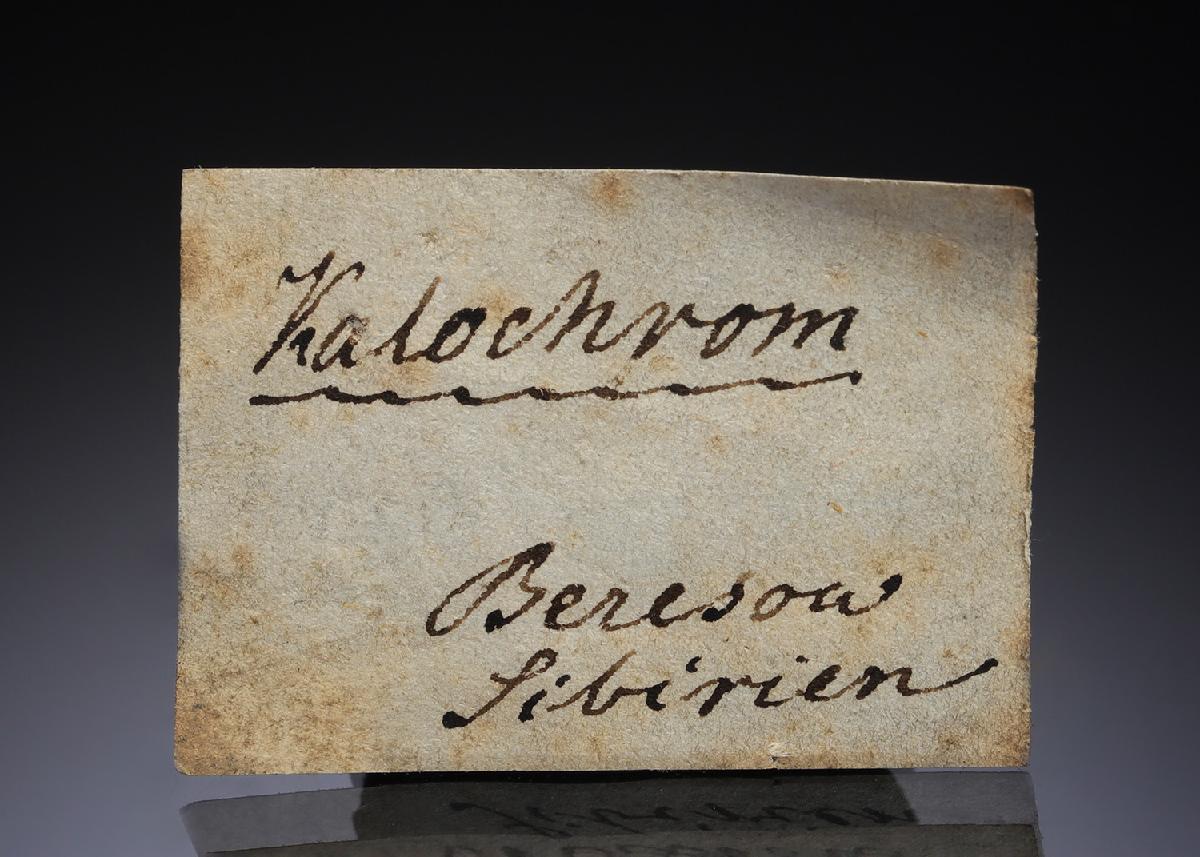 Kalochrom
Beresow
Sibirien